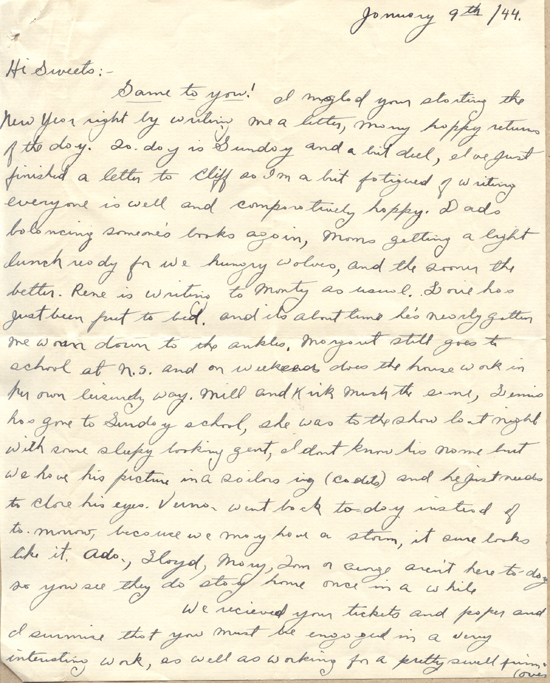 January 9th /44.
Hi Sweets:-
Same to you! I m glad your starting the
New Year right by writing me a letter, many happy returns
of the day. So. day is Sunday and a bit dul, I've just
finished a letter to Cliff so I'm a bit fatigued of writing
everyone is well and comparatively happy. Dads
balancing someone's books again, Moms getting a light
lunch ready for we hungry wolves, and the sooner the
better. Rene is writing to Monty as usual.
just been put to bed. and its about time he's nearly gotten
me down to the ankles. Margaret still goes to
school at N.S. and on weekends does the house work in
her own leisurely way. Mill and Kirk much the same,
has gone to Sunday school, she was to the show last night
with some sleepy looking gent, I dont know his name but
we have his picture in a sailors rig (cadets) and he just needs
to close his eyes. went back to day instead of
to. morrow, because we may have a storm, it sure looks
like it. Ada., Lloyd, Mary, or aren't here to-day
so you see they do stay home once in a while
We recieved your tickets and paper and
I surmise that you must be engaged in a very
interesting work, as well as working for a pretty swell firm.
(over